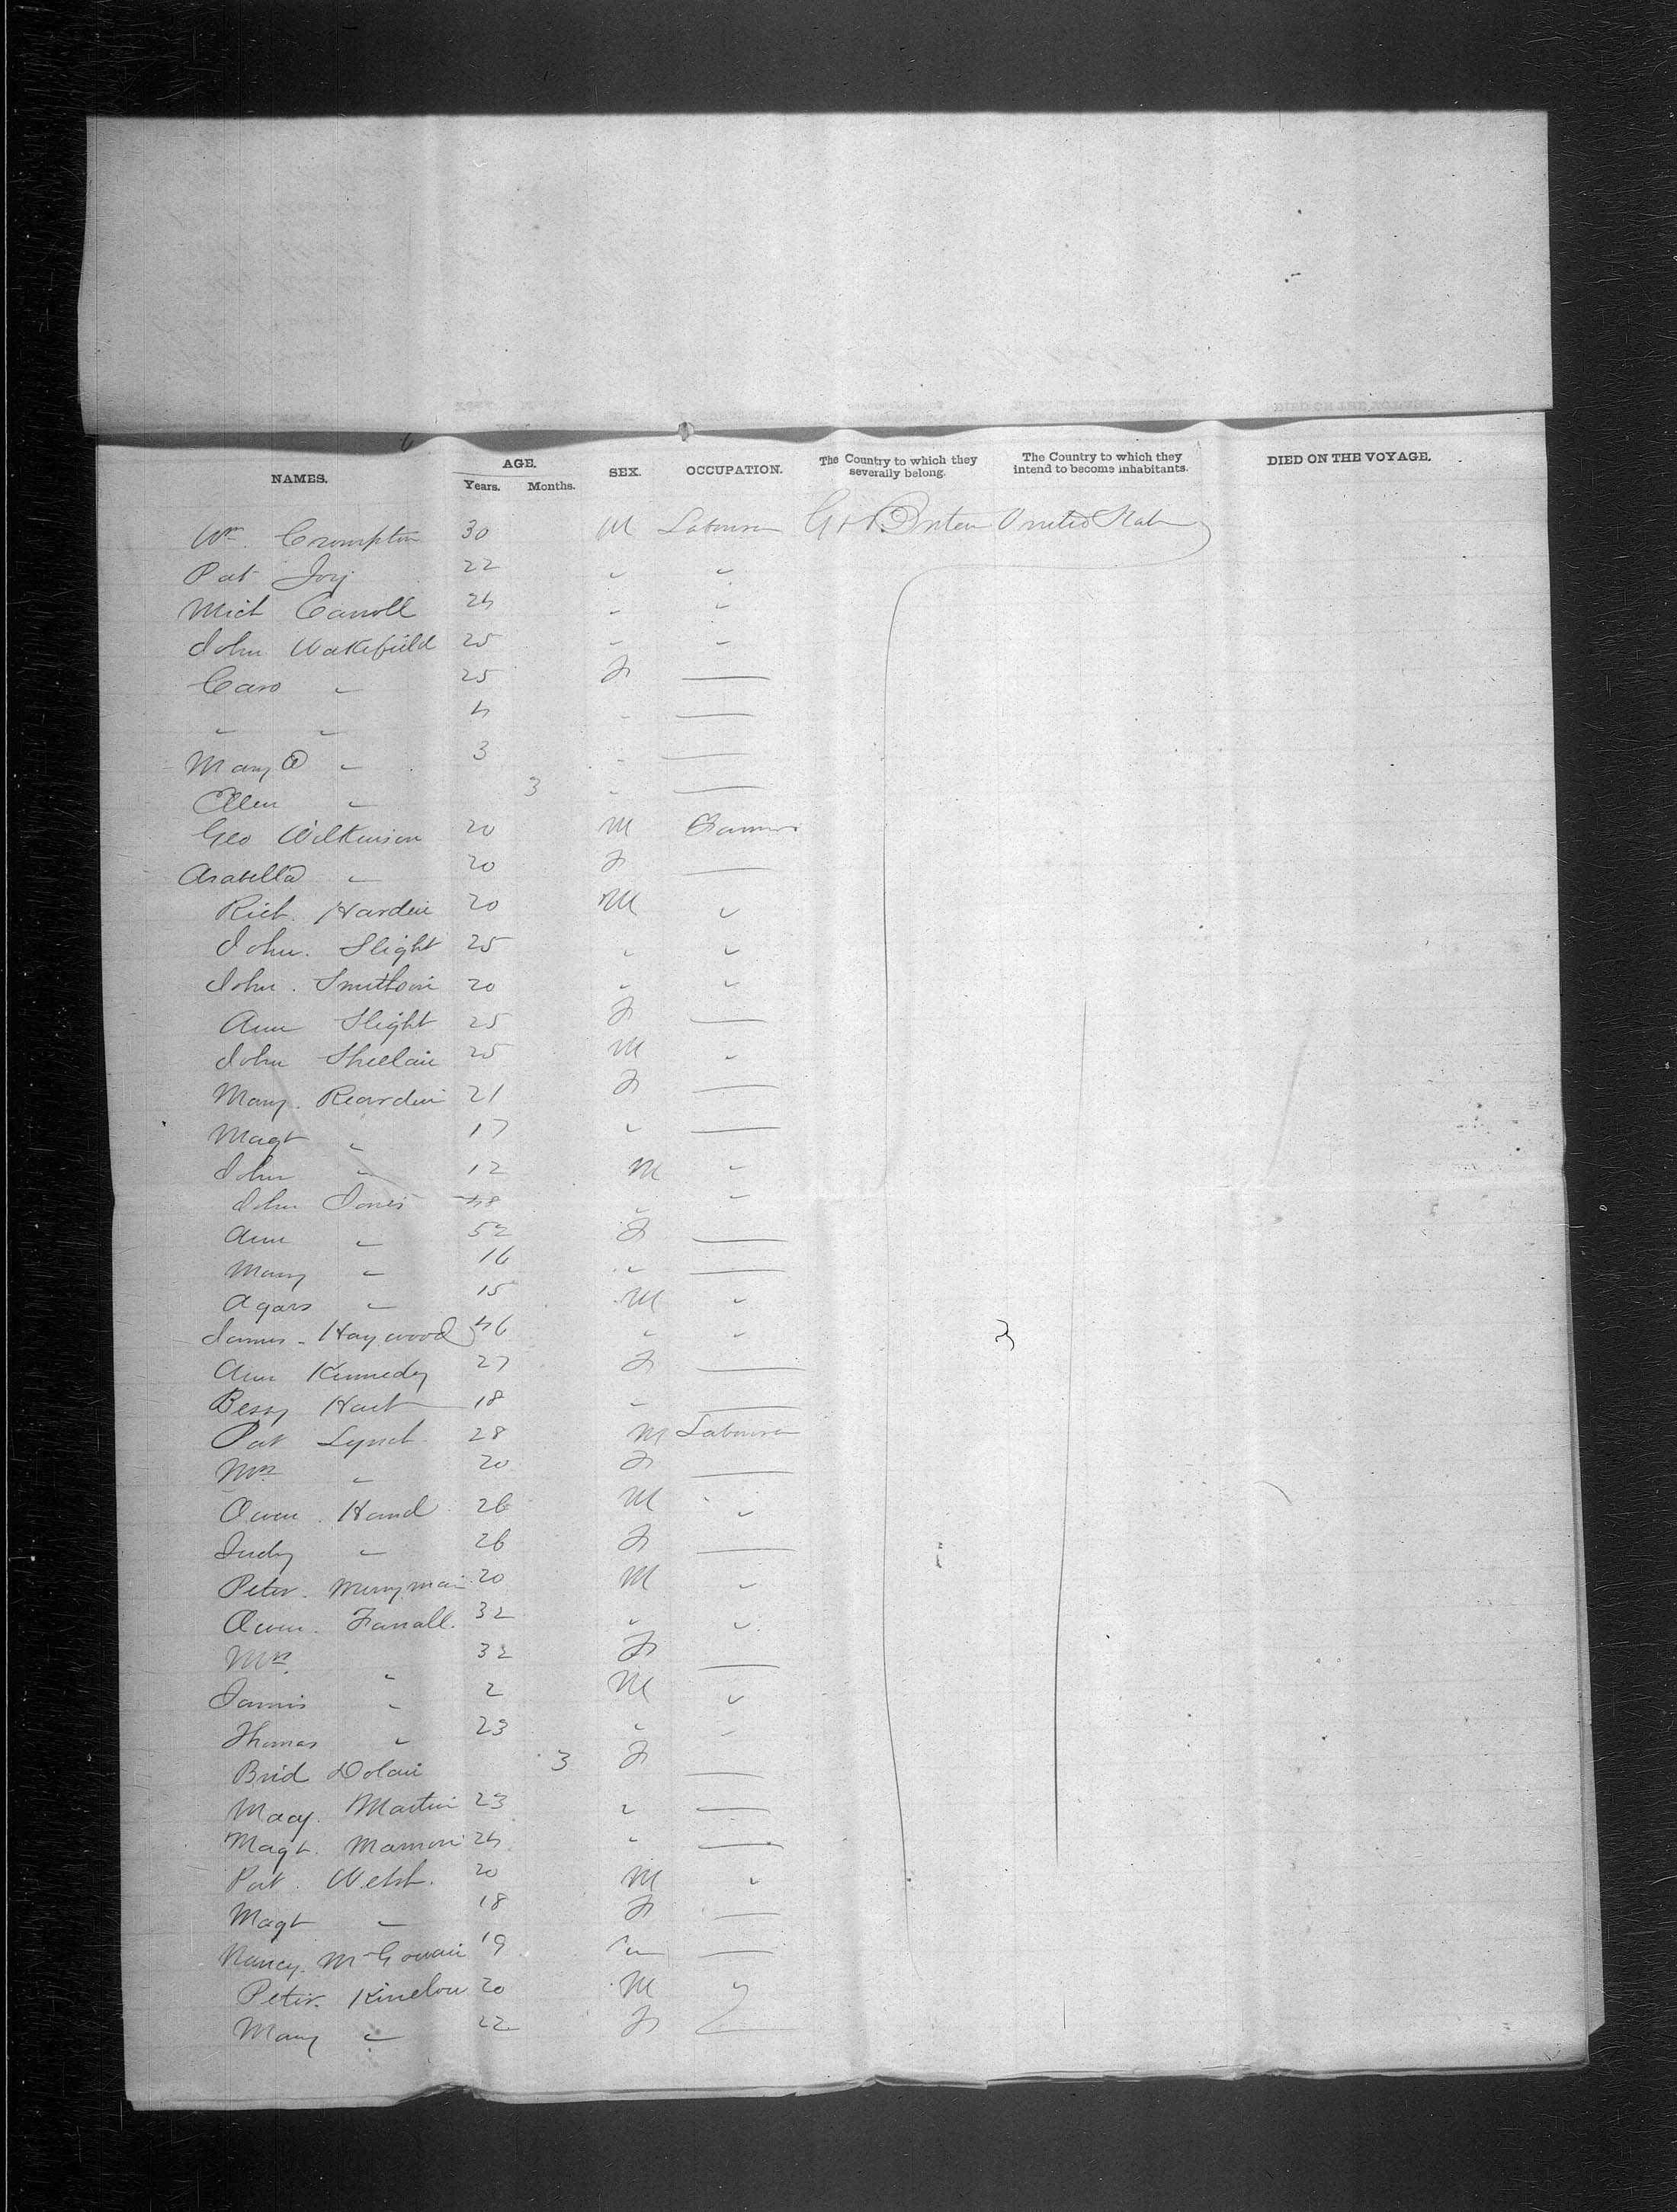 NAMES. AGE. Years. Months. SEX. OCCUPATION. The Country to which they severally belong. The Country to which they intend to become inhabitants. DIED ON THE VOYAGE.
Wm. Crompton 30 M Labourer Gt Britain United States
Pat Joy 22 " "
Mich Carroll 24 " "
John Wakefield 25 " "
Caro " 25 F —
" " 4 " —
Mary A " 3 " —
Ellen " 3 " —
Geo Wilkinson 20 M Farmer
Arabella " 20 F —
Rich. Hardin 20 M "
John. Slight 25 " "
John. Smithson 20 " "
Ann Slight 25 F —
John Sheelan 25 M "
Mary. Reardin 21 F —
Magt " 17 " —
John " 12 M "
John Jones 48 " "
Ann " 52 F —
Mary " 16 " —
Agars " 15 M "
James Haywood 46 " "
Ann Kennedy 27 F —
Bessy Hart 18 " —
Pat Lynch 28 M Labourer
Mrs " 20 F —
Owen. Hand 26 M "
Judy " 26 F —
Peter. Merryman 20 M "
Owen. Farrall. 32 " "
Mrs. " 32 F —
James " 2 M "
Thomas " 23 " "
Brid Dolan 3 F —
Macy. Martin 23 " —
Magt. Mannon 24 " —
Pat. Welsh. 20 M "
Magt " 18 F —
Nancy. McGowan 19 " —
Peter. Kinelon 20 M "
Mary " 22 F —